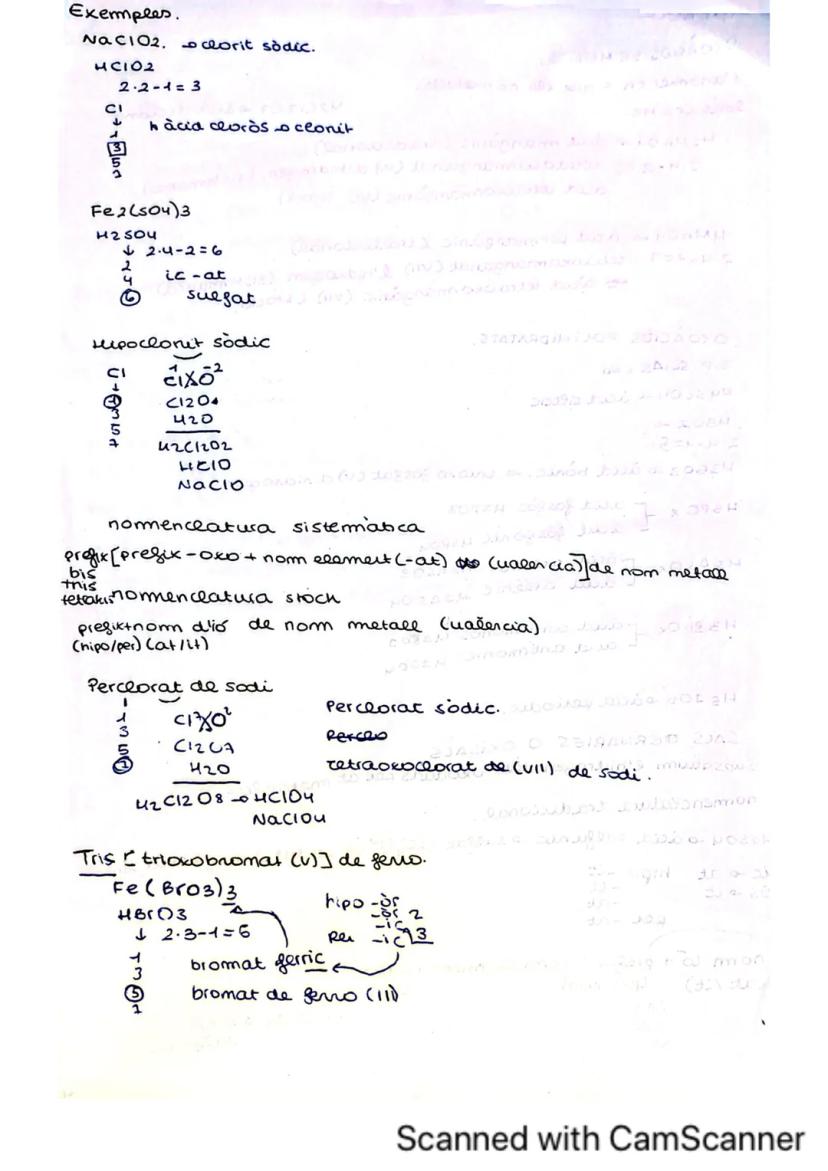 Exemples.
NaClO2. → clorit sòdic.
HClO2
2·2-1=3
Cl
↓
1
3
5
7
h àcid cloròs → clorit
Fe2(SO4)3
H2SO4
↓ 2·4-2=6
2
4 ic -at
6 sulfat
Hipoclorit sòdic
Cl
↓
1
3
5
7
Cl O
Cl2O1
H2O
H2Cl2O2
HClO
NaClO
nomenclatura sistemàtica
prefix[prefix-oxo+nom element(-at) (valencia)]de nom metall
bis
tris
tetrakis
nomenclatura stock
prefix+nom d'ió de nom metall (valencia)
(hipo/per) (at/it)
Perclorat de sodi
1
3
5
7
Cl O
Cl2O7
H2O
H2Cl2O8 → HClO4
NaClO4
Perclorat sòdic.
Perclo
tetraoxoclorat de (VII) de sodi.
Tris [trioxobromat (V)] de ferro.
Fe(BrO3)3
HBrO3
↓ 2·3-1=5
1
3
5
7
hipo -òs
-òs 2
-ic
per -ic 3
bromat ferric
bromat de ferro (III)
Scanned with CamScanner